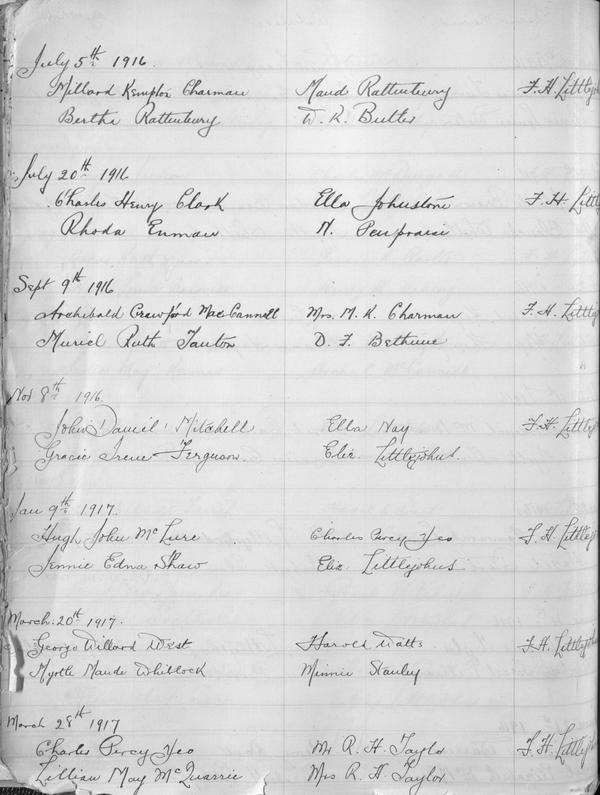 July 5th 1916.
Millard Kempton Charman Maude Rattenbury F. H. Littlejoh
Bertha Rattenbury W. K. Butler
July 20th 1916
Charles Henry Clark Ella Johnstone F. H. Littl
Rhoda Enman N. Penpraise
Sept 9th 1916
Archibald Crawford MacCannell Mrs. M. K. Charman F. H. Littlej
Muriel Ruth Tanton D. F. Bethune
Nov 8th 1916.
John Daniel Mitchell Ella Hay F. H. Littlejo
Gracie Irene Ferguson. Eliz. Littlejohns.
Jan 9th 1917.
Hugh John McLure Charles Percy Yeo F. H. Littlejo
Jennie Edna Shaw Eliz. Littlejohns
March. 20th 1917.
George Willard West Harold Watts F. H. Littlejo
Myrtle Maude Whitlock Minnie Stanley
March 28th 1917
Charles Percy Yeo Mr R. H. Taylor F. H. Littlejo
Lillian May McQuarrie Mrs R. H. Taylor